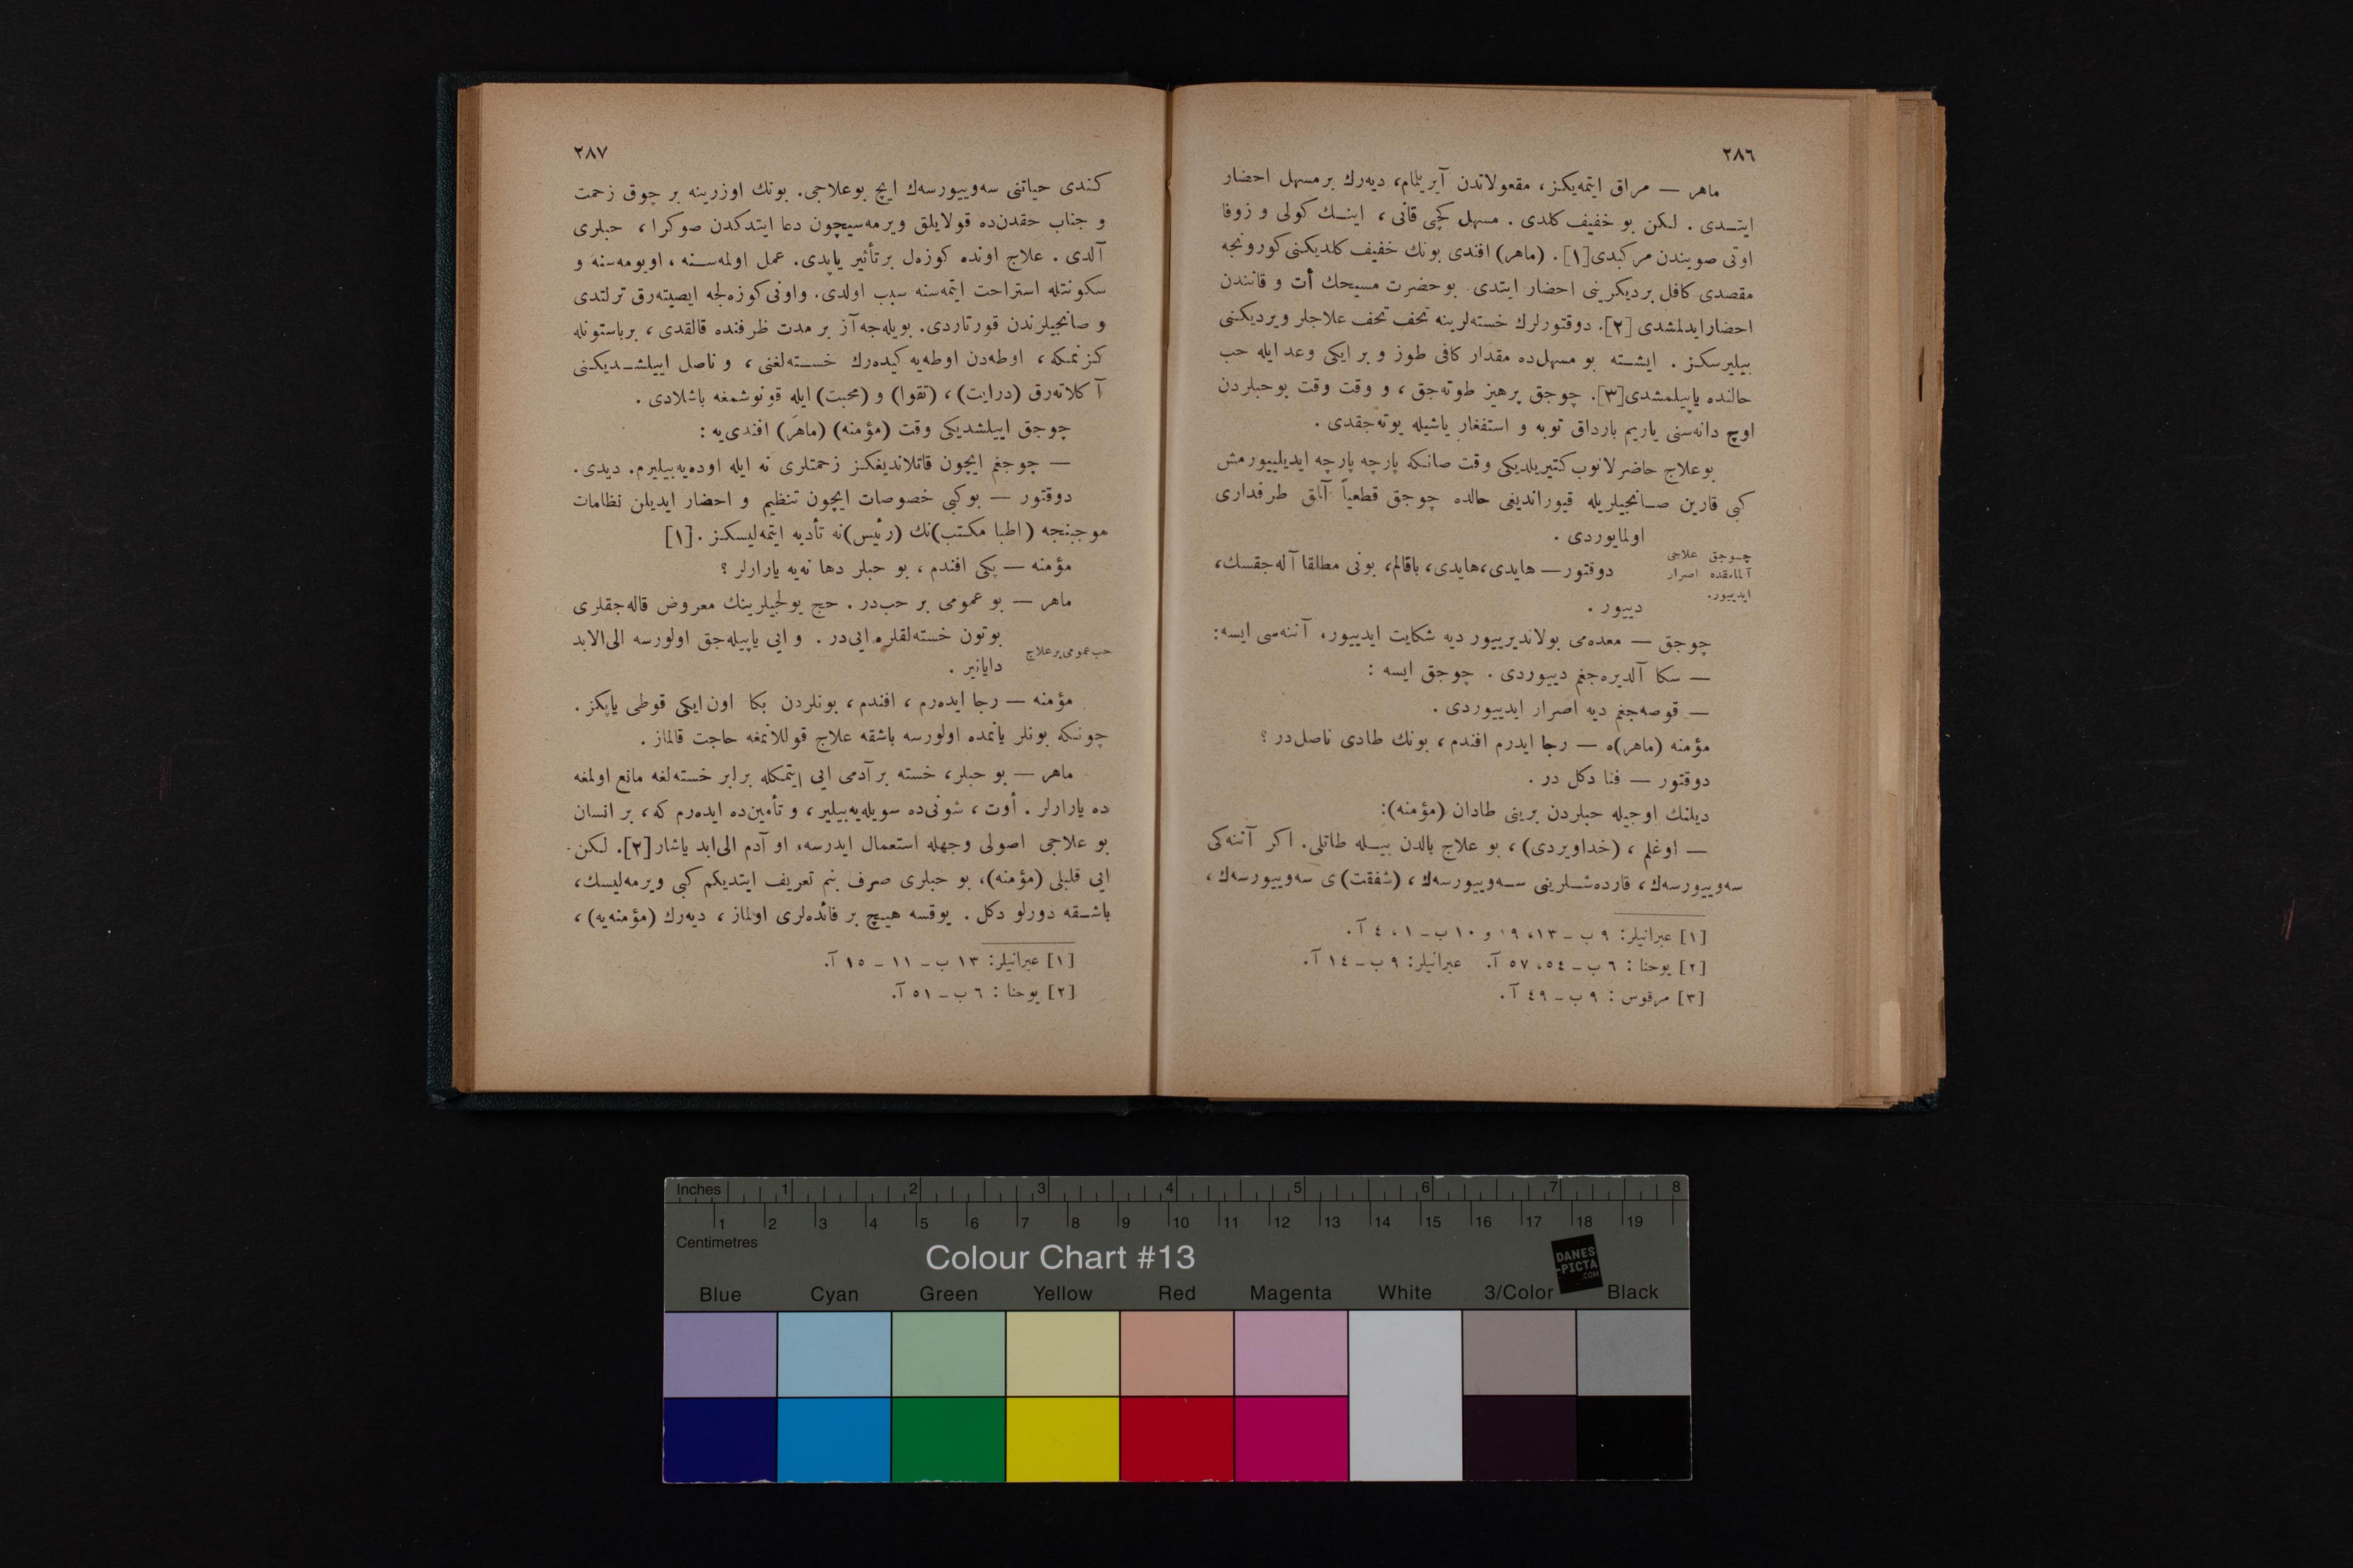 ٢٨٦
ماهر — مراق ايتمه‌يكز، مقعولاتدن آيريلمام، ديه‌رك برمسهل احضار
ايتـدى . لكن بو خفيف كلدى . مسهل كچى قانى ، اينـك كولى و زوفا
اوتى صويندن مركبدى[١]. (ماهر) افندى بونك خفيف كلديكنى كورونجه
مقصدى كافل برديكرينى احضار ايتدى. بوحضرت مسيحك أت و قانندن
احضارايدلمشدى [٢]. دوقتورلرك خسته‌لرينه تحف تحف علاجلر ويرديكنى
بيليرسكز . ايشـته بو مسهل‌ده مقدار كافى طوز و بر ايكى وعد ايله حب
حالنده ياپيلمشدى[٣]. چوجق پرهيز طوته‌جق ، و وقت وقت بوحبلردن
اوچ دانه‌سنى ياريم بارداق توبه و استغفار ياشيله يوته‌جقدى .
بوعلاج حاضرلانوب كتيريلديكى وقت صانكه پارچه پارچه ايديلييورمش
كبى قارين صـانجيلريله قيورانديغى حالده چوجق قطعياً آلمق طرفدارى
اولمايوردى .
چـوجق علاجى
آلمامقده اصرار
ايدييور.
دوقتور— هايدى،هايدى، باقالم، بونى مطلقا آله‌جقسك،
دييور .
چوجق — معده‌مى بولانديرييور ديه شكايت ايدييور، آننه‌سى ايسه:
— سكا آلديره‌جغم دييوردى . چوجق ايسه :
— قوصه‌جغم ديه اصرار ايدييوردى .
مؤمنه (ماهر)ه — رجا ايدرم افندم، بونك طادى ناصل‌در ؟
دوقتور — فنا دكل در .
ديلنك اوجيله حبلردن برينى طادان (مؤمنه):
— اوغلم ، (خداويردى) ، بو علاج بالدن بيـله طاتلى. اكر آننه‌كى
سه‌وييورسه‌ك، قارده‌شـلرينى سـه‌وييورسه‌ك، (شفقت)ى سه‌وييورسه‌ك،
[١] عبرانيلر: ٩ ب ـ ١٣، ١٩ و ١٠ ب ـ ١ ، ٤ آ.
[٢] يوحنا : ٦ ب ـ ٥٤، ٥٧ آ. عبرانيلر: ٩ ب ـ ١٤ آ.
[٣] مرقوس : ٩ ب ـ ٤٩ آ.
٢٨٧
كندى حياتنى سه‌وييورسه‌ك ايچ بوعلاجى. بونك اوزرينه بر چوق زحمت
و جناب حقدن‌ده قولايلق ويرمه‌سيچون دعا ايتدكدن صوكرا، حبلرى
آلدى . علاج اونده كوزه‌ل برتأثير ياپدى. عمل اولمه‌سـنه ، اويومه‌سنه و
سكونتله استراحت ايتمه‌سنه سبب اولدى. واونى كوزه‌لجه ايصيته‌رق ترلتدى
و صانجيلرندن قورتاردى. بويله‌جه آز بر مدت ظرفنده قالقدى ، برباستونله
كزنمكه ، اوطه‌دن اوطه‌يه كيده‌رك خسـته‌لغنى ، و ناصل اييلشـديكنى
آكلاته‌رق (درايت) ، (تقوا) و (محبت) ايله قونوشمغه باشلادى .
چوجق اييلشديكى وقت (مؤمنه) (ماهر) افندى‌يه :
— چوجغم ايچون قاتلانديغكز زحمتلرى نه ايله اوده‌يه‌بيليرم. ديدى.
دوقتور — بوكبى خصوصات ايچون تنظيم و احضار ايديلن نظامات
موجبنجه (اطبا مكتب)نك (رئيس)نه تأديه ايتمه‌ليسكز .[١]
مؤمنه — پكى افندم ، بو حبلر دها نه‌يه يارارلر ؟
ماهر — بو عمومى بر حب‌در . حج يولجيلرينك معروض قاله‌جقلرى
بوتون خسته‌لقلره ايى‌در . و ايى ياپيله‌جق اولورسه الى‌الابد
دايانير .
حب‌عمومى‌برعلاج
مؤمنه — رجا ايده‌رم ، افندم ، بونلردن بكا اون‌ايكى قوطى ياپكز .
چونكه بونلر يانمده اولورسه باشقه علاج قوللانمغه حاجت قالماز .
ماهر — بو حبلر، خسته بر آدمى ايى ايتمكله برابر خسته‌لغه مانع اولمغه
ده يارارلر . أوت ، شونى‌ده سويله‌يه‌بيلير، و تأمين‌ده ايده‌رم كه، بر انسان
بو علاجى اصولى وجهله استعمال ايدرسه، او آدم الى‌ابد ياشار[٢]. لكن
ايى قلبلى (مؤمنه)، بو حبلرى صرف بنم تعريف ايتديكم كبى ويرمه‌ليسك،
باشـقه دورلو دكل . يوقسه هيـچ بر فائده‌لرى اولماز ، ديه‌رك (مؤمنه‌يه) ،
[١] عبرانيلر: ١٣ ب ـ ١١ ـ ١٥ آ.
[٢] يوحنا : ٦ ب ـ ٥١ آ.
Inches 1 2 3 4 5 6 7 8
1 2 3 4 5 6 7 8 9 10 11 12 13 14 15 16 17 18 19
Centimetres
Colour Chart #13
DANES
-PICTA
.COM
Blue Cyan Green Yellow Red Magenta White 3/Color Black